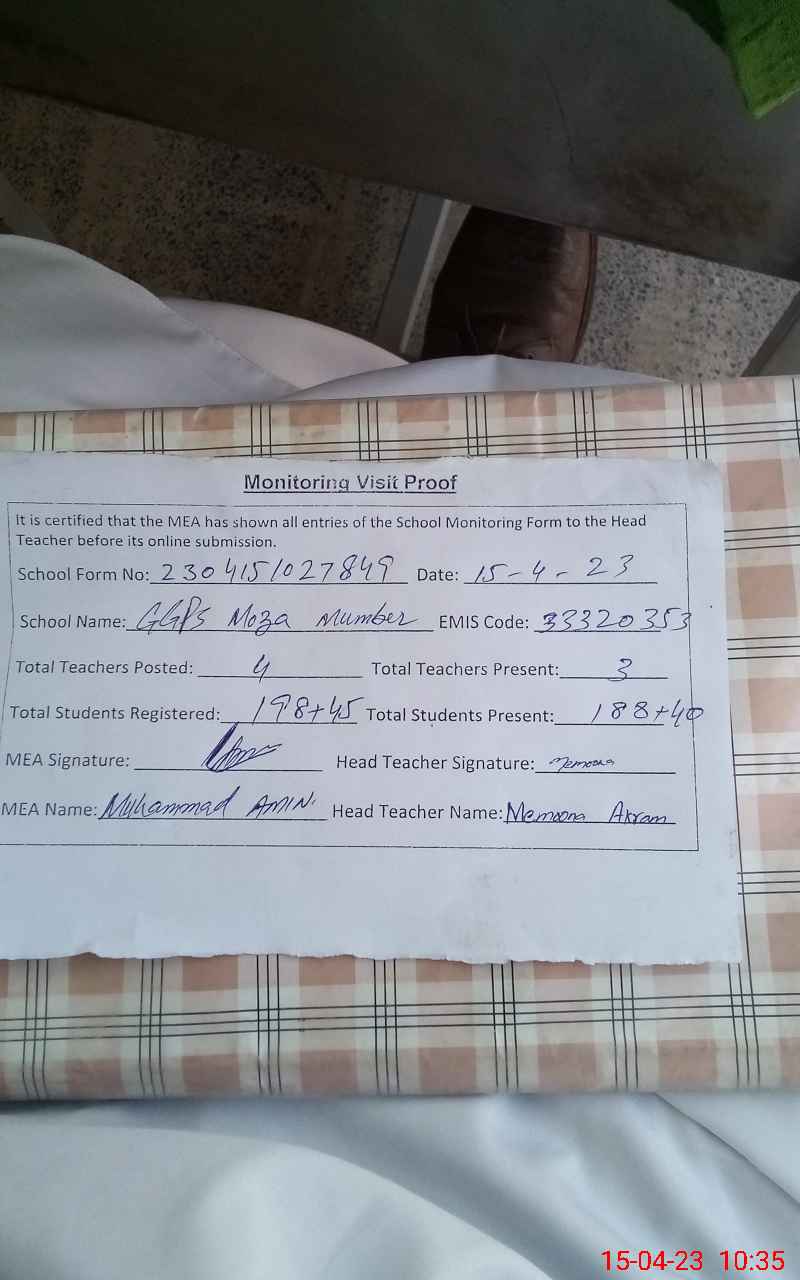 Monitoring Visit Proof
It is certified that the MEA has shown all entries of the School Monitoring Form to the Head
Teacher before its online submission.
School Form No: 2304151027849 Date: 15-4-23
School Name: GGPS Moza Mumber EMIS Code: 33320353
Total Teachers Posted: 4 Total Teachers Present: 3
Total Students Registered: 198+45 Total Students Present: 188+40
MEA Signature: Head Teacher Signature: Memoona
MEA Name: Muhammad AMIN. Head Teacher Name: Memoona Akram
15-04-23 10:35